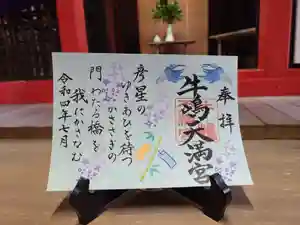 奉拝
牛嶋天満宮
彦星の
ゆきあひを待つ
かささぎの
門わたる橋を
我にかさなむ
令和四年七月